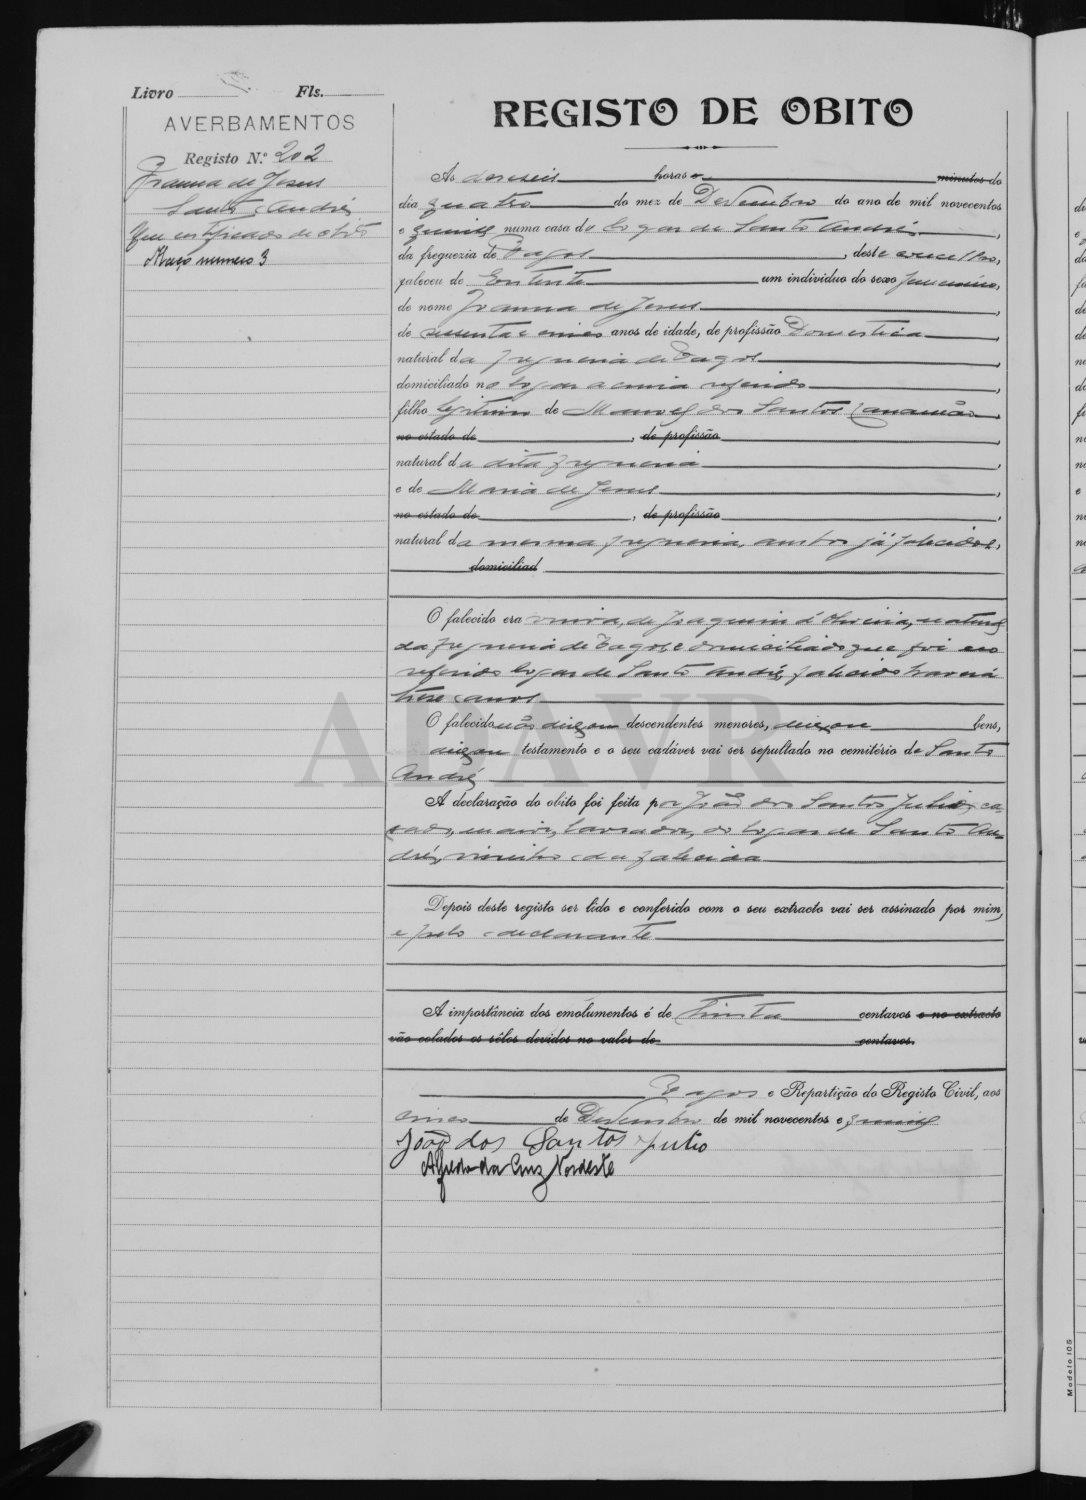 Livro Fls.
AVERBAMENTOS
Registo N.º 202
Joanna de Jesus
Santo André
Um certificado de óbito
Março numero 3
REGISTO DE OBITO
As deseseis horas e minutos do
dia quatro do mez de Desembro do ano de mil novecentos
e quinse numa casa do logar de Santo André,
da freguezia de Vagos, deste concelho,
faleceu de um individuo do sexo feminino,
de nome Joanna de Jesus,
de sessenta e cinco anos de idade, de profissão Domestica,
natural da freguesia de Vagos,
domiciliado no logar acima referido,
filho legitimo de Manoel dos Santos,
no estado de, de profissão,
natural da dita freguesia,
e de Maria de Jesus,
no estado de, de profissão,
natural da mesma freguesia, ambos já falecidos,
domiciliad
O falecido era viuva, de Joaquim d'Oliveira, natural
da freguesia de Vagos, e domiciliado que foi no
referido logar de Santo André, falecido haverá
trese annos
O falecido não deixou descendentes menores, deixou bens,
deixou testamento e o seu cadáver vai ser sepultado no cemitério de Santo
André
A declaração do obito foi feita por João dos Santos Julio, ca-
sado, maior, lavrador, do logar de Santo An-
dré, visinho da falecida
Depois deste registo ser lido e conferido com o seu extracto vai ser assinado por mim,
e pelo declarante
A importância dos emolumentos é de trinta centavos e no extracto
vão colados os sêlos devidos no valor de centavos.
Vagos e Repartição do Registo Civil, aos
cinco de Desembro de mil novecentos e quinse
João dos Santos Julio
Alfredo da Cruz Nordeste
ADAVR
Modelo 105